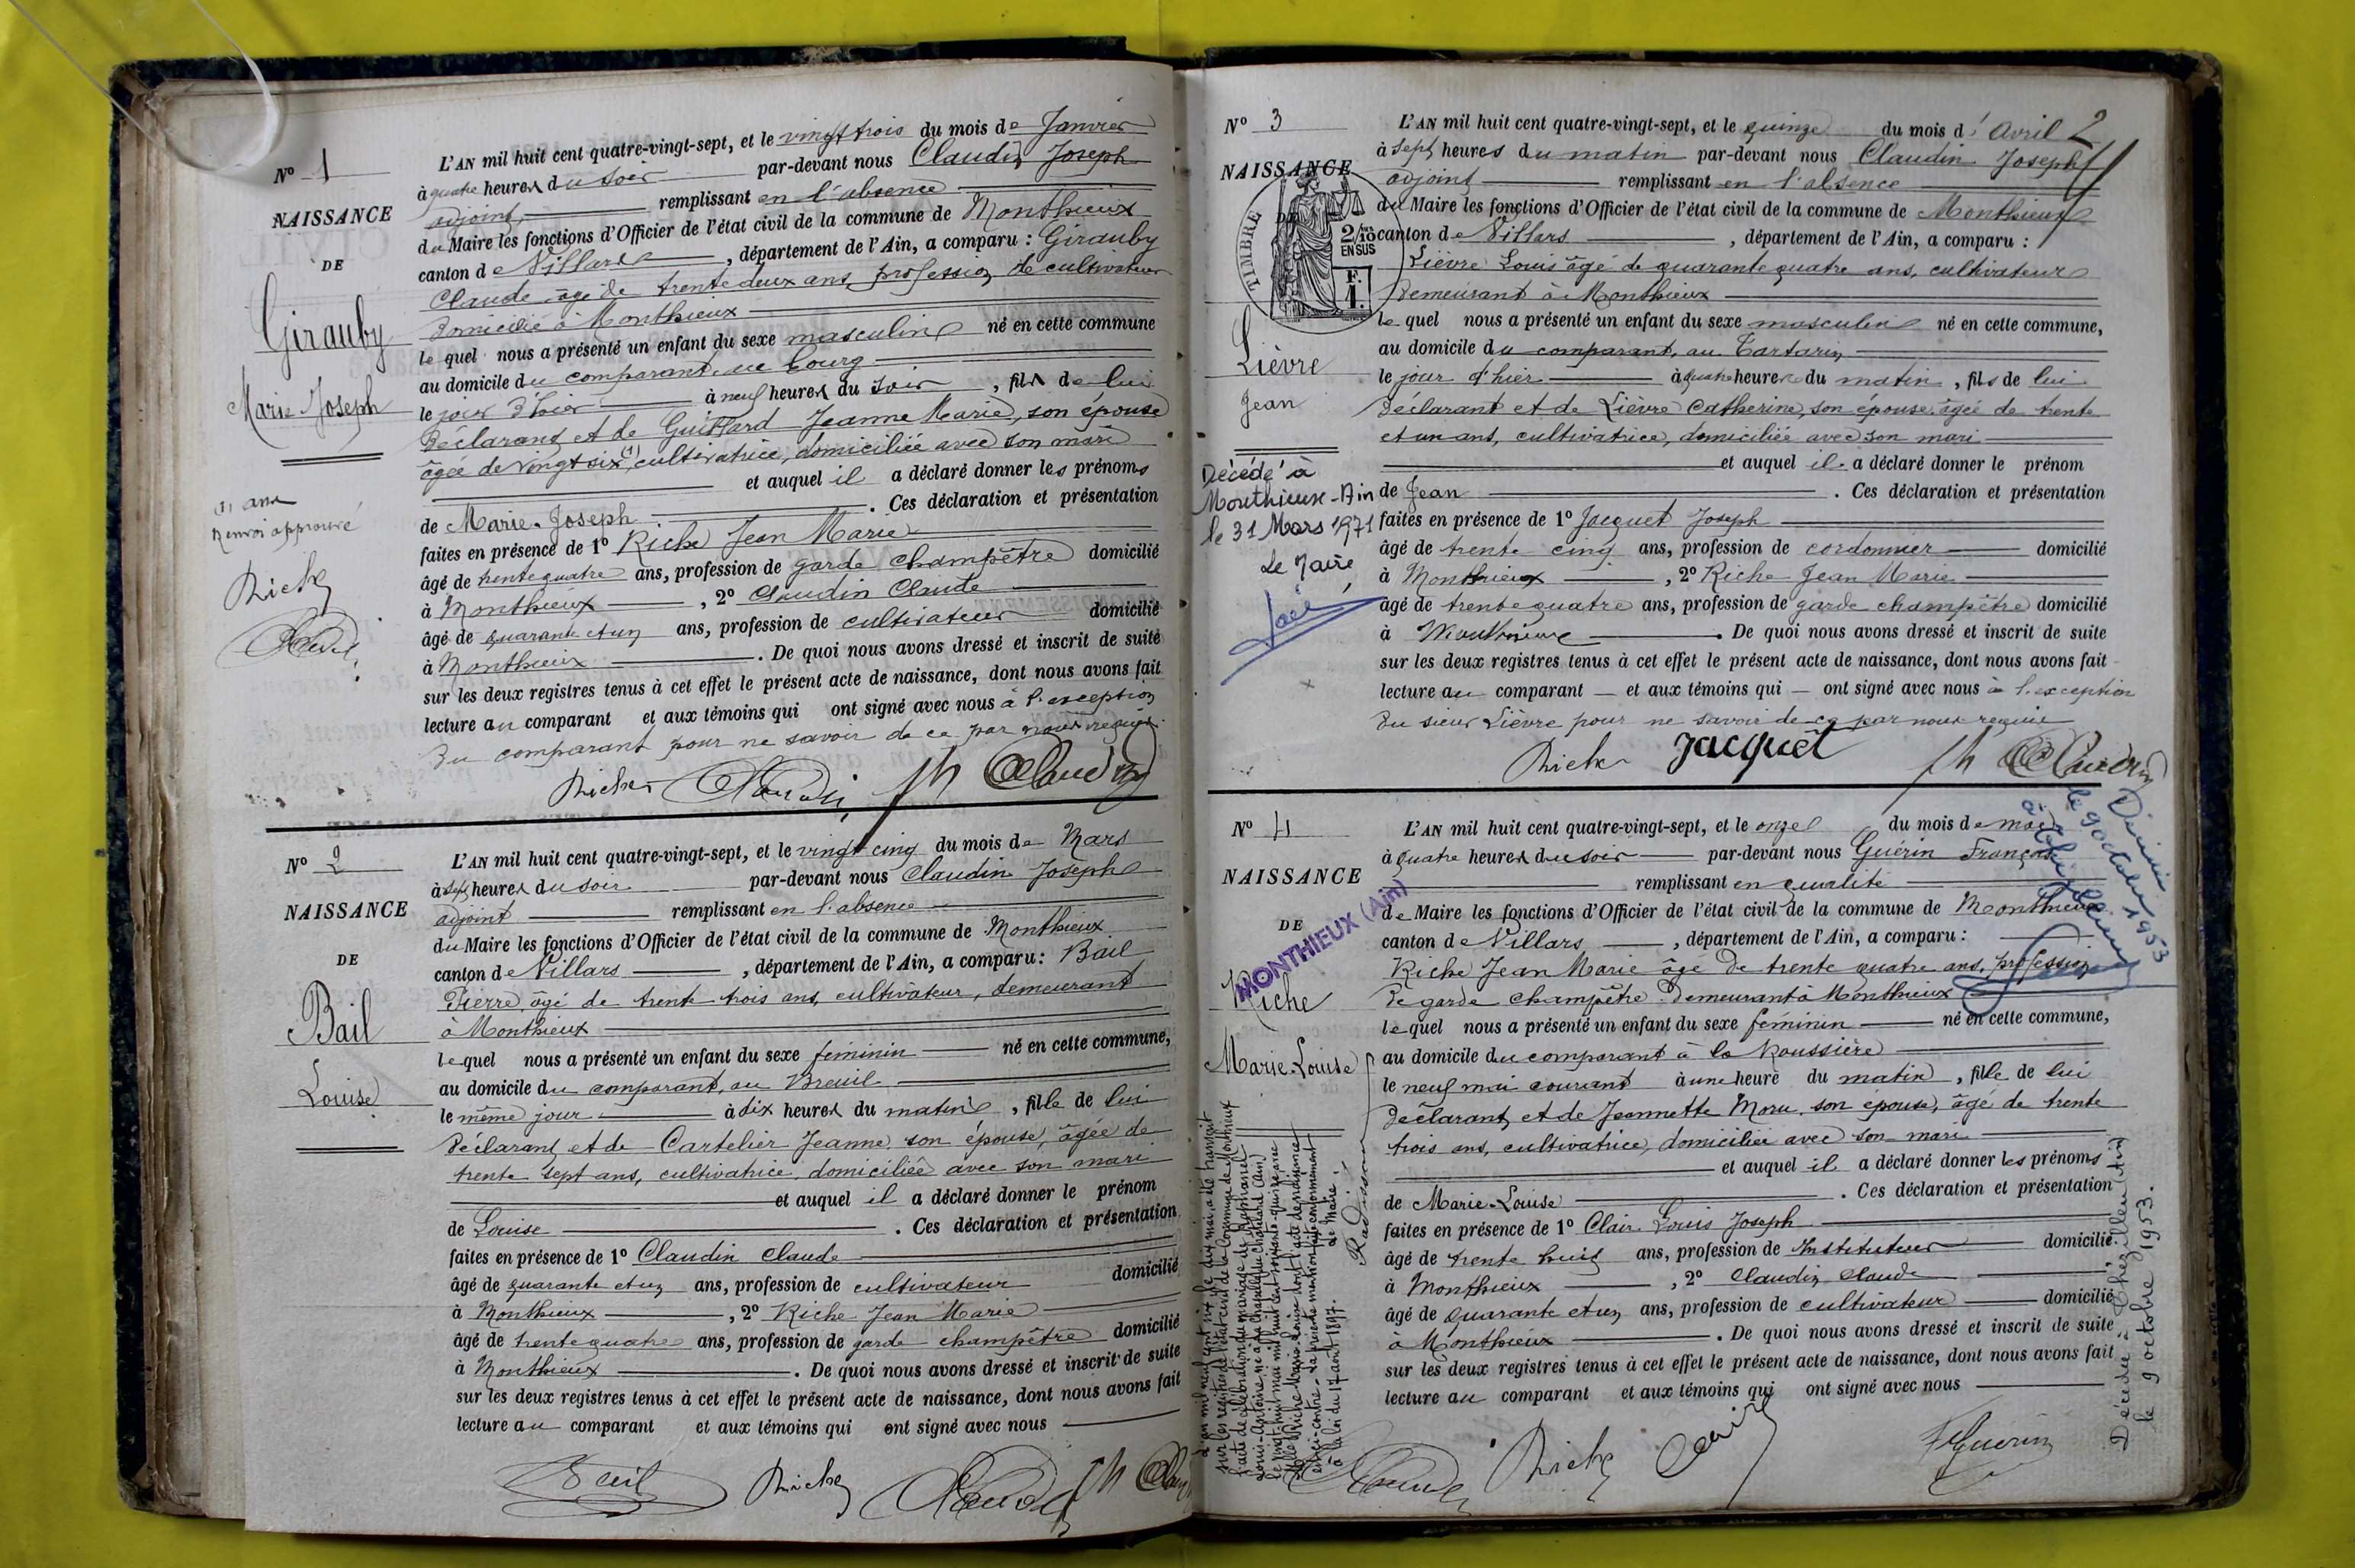 N° 1
NAISSANCE
DE
Girauby
Marie Joseph
(1) ans
Renvoi approuvé
Riche
L'AN mil huit cent quatre-vingt-sept, et le vingt trois du mois de Janvier
à quatre heures du soir par-devant nous Claudin Joseph
adjoint, remplissant en l'absence
du Maire les fonctions d'Officier de l'état civil de la commune de Monthieux
canton de Villars, département de l'Ain, a comparu : Girauby
Claude âgé de trente deux ans, profession de cultivateur
domicilié à Monthieux
lequel nous a présenté un enfant du sexe masculin né en cette commune
au domicile du comparant, au bourg
le jour d'hier à neuf heures du soir, fils de lui
déclarant et de Guittard Jeanne Marie, son épouse
âgée de vingt six (1), cultivatrice, domiciliée avec son mari
et auquel il a déclaré donner les prénoms
de Marie-Joseph. Ces déclaration et présentation
faites en présence de 1° Riche Jean Marie
âgé de trente quatre ans, profession de garde champêtre domicilié
à Monthieux, 2° Claudin Claude
âgé de quarante et un ans, profession de cultivateur domicilié
à Monthieux. De quoi nous avons dressé et inscrit de suite
sur les deux registres tenus à cet effet le présent acte de naissance, dont nous avons fait
lecture au comparant et aux témoins qui ont signé avec nous à l'exception
du comparant pour ne savoir de ce par nous requis.
Riche Claudin Jh Claudin
N° 2
NAISSANCE
DE
Bail
Louise
L'AN mil huit cent quatre-vingt-sept, et le vingt cinq du mois de Mars
à sept heures du soir par-devant nous Claudin Joseph
adjoint remplissant en l'absence
du Maire les fonctions d'Officier de l'état civil de la commune de Monthieux
canton de Villars, département de l'Ain, a comparu : Bail
Pierre, âgé de trente trois ans, cultivateur, demeurant
à Monthieux
lequel nous a présenté un enfant du sexe féminin né en cette commune,
au domicile du comparant, au Breuil
le même jour à dix heures du matin, fille de lui
déclarant et de Cartelier Jeanne son épouse, âgée de
trente sept ans, cultivatrice, domiciliée avec son mari
et auquel il a déclaré donner le prénom
de Louise. Ces déclaration et présentation
faites en présence de 1° Claudin Claude
âgé de quarante et un ans, profession de cultivateur domicilié
à Monthieux, 2° Riche Jean Marie
âgé de trente quatre ans, profession de garde champêtre domicilié
à Monthieux. De quoi nous avons dressé et inscrit de suite
sur les deux registres tenus à cet effet le présent acte de naissance, dont nous avons fait
lecture au comparant et aux témoins qui ont signé avec nous
Bail Riche Claudin Jh
N° 3
NAISSANCE
DE
TIMBRE
2/10
EN SUS
F.
1.
Lièvre
Jean
Décédé à
Monthieux-Ain
le 31 Mars 1971
Le Maire
2
L'AN mil huit cent quatre-vingt-sept, et le quinze du mois d'Avril
à sept heures du matin par-devant nous Claudin Joseph
adjoint remplissant en l'absence
du Maire les fonctions d'Officier de l'état civil de la commune de Monthieux
canton de Villars, département de l'Ain, a comparu :
Lièvre Louis âgé de quarante quatre ans, cultivateur
demeurant à Monthieux
lequel nous a présenté un enfant du sexe masculin né en cette commune,
au domicile du comparant, au Tartarin
le jour d'hier à quatre heures du matin, fils de lui
déclarant et de Lièvre Catherine, son épouse âgée de trente
et un ans, cultivatrice, domiciliée avec son mari
et auquel il a déclaré donner le prénom
de Jean. Ces déclaration et présentation
faites en présence de 1° Jacquet Joseph
âgé de trente cinq ans, profession de cordonnier domicilié
à Monthieux, 2° Riche Jean Marie
âgé de trente quatre ans, profession de garde champêtre domicilié
à Monthieux. De quoi nous avons dressé et inscrit de suite
sur les deux registres tenus à cet effet le présent acte de naissance, dont nous avons fait
lecture au comparant et aux témoins qui ont signé avec nous à l'exception
du sieur Lièvre pour ne savoir de ce par nous requis
Riche Jacquet Jh Claudin
N° 4
NAISSANCE
DE
MONTHIEUX (Ain)
Riche
Marie-Louise
L'AN mil huit cent quatre-vingt-sept, et le onze du mois de mai
à quatre heures du soir par-devant nous Guérin François
remplissant en qualité
de Maire les fonctions d'Officier de l'état civil de la commune de Monthieux
canton de Villars, département de l'Ain, a comparu :
Riche Jean Marie âgé de trente quatre ans, profession
de garde champêtre demeurant à Monthieux
lequel nous a présenté un enfant du sexe féminin né en cette commune,
au domicile du comparant à la Roussière
le neuf mai courant à une heure du matin, fille de lui
déclarant et de Jeannette Moru son épouse, âgé de trente
trois ans, cultivatrice, domiciliée avec son mari
et auquel il a déclaré donner les prénoms
de Marie-Louise. Ces déclaration et présentation
faites en présence de 1° Clair Louis Joseph
âgé de trente huit ans, profession de Instituteur domicilié
à Monthieux, 2° Claudin Claude
âgé de quarante et un ans, profession de cultivateur domicilié
à Monthieux. De quoi nous avons dressé et inscrit de suite
sur les deux registres tenus à cet effet le présent acte de naissance, dont nous avons fait
lecture au comparant et aux témoins qui ont signé avec nous
Claudin Riche Clair Guerin
L'an mil neuf cent six le dix mai, a été transcrit
sur les registres de l'état civil de la Commune de Monthieux
l'acte de célébration du mariage de
Louis-Antoine, né à La Chapelle du Chatelard (Ain)
le vingt-huit mai mil huit cent soixante-quinze, avec
Melle Riche Marie-Louise dont l'acte de naissance
est ci-contre. La présente mention faite conformément
à la loi du 17 août 1897.
Le Maire :
le 9 octobre 1953
Décédée à Chezilleu (Ain)
le 9 octobre 1953.